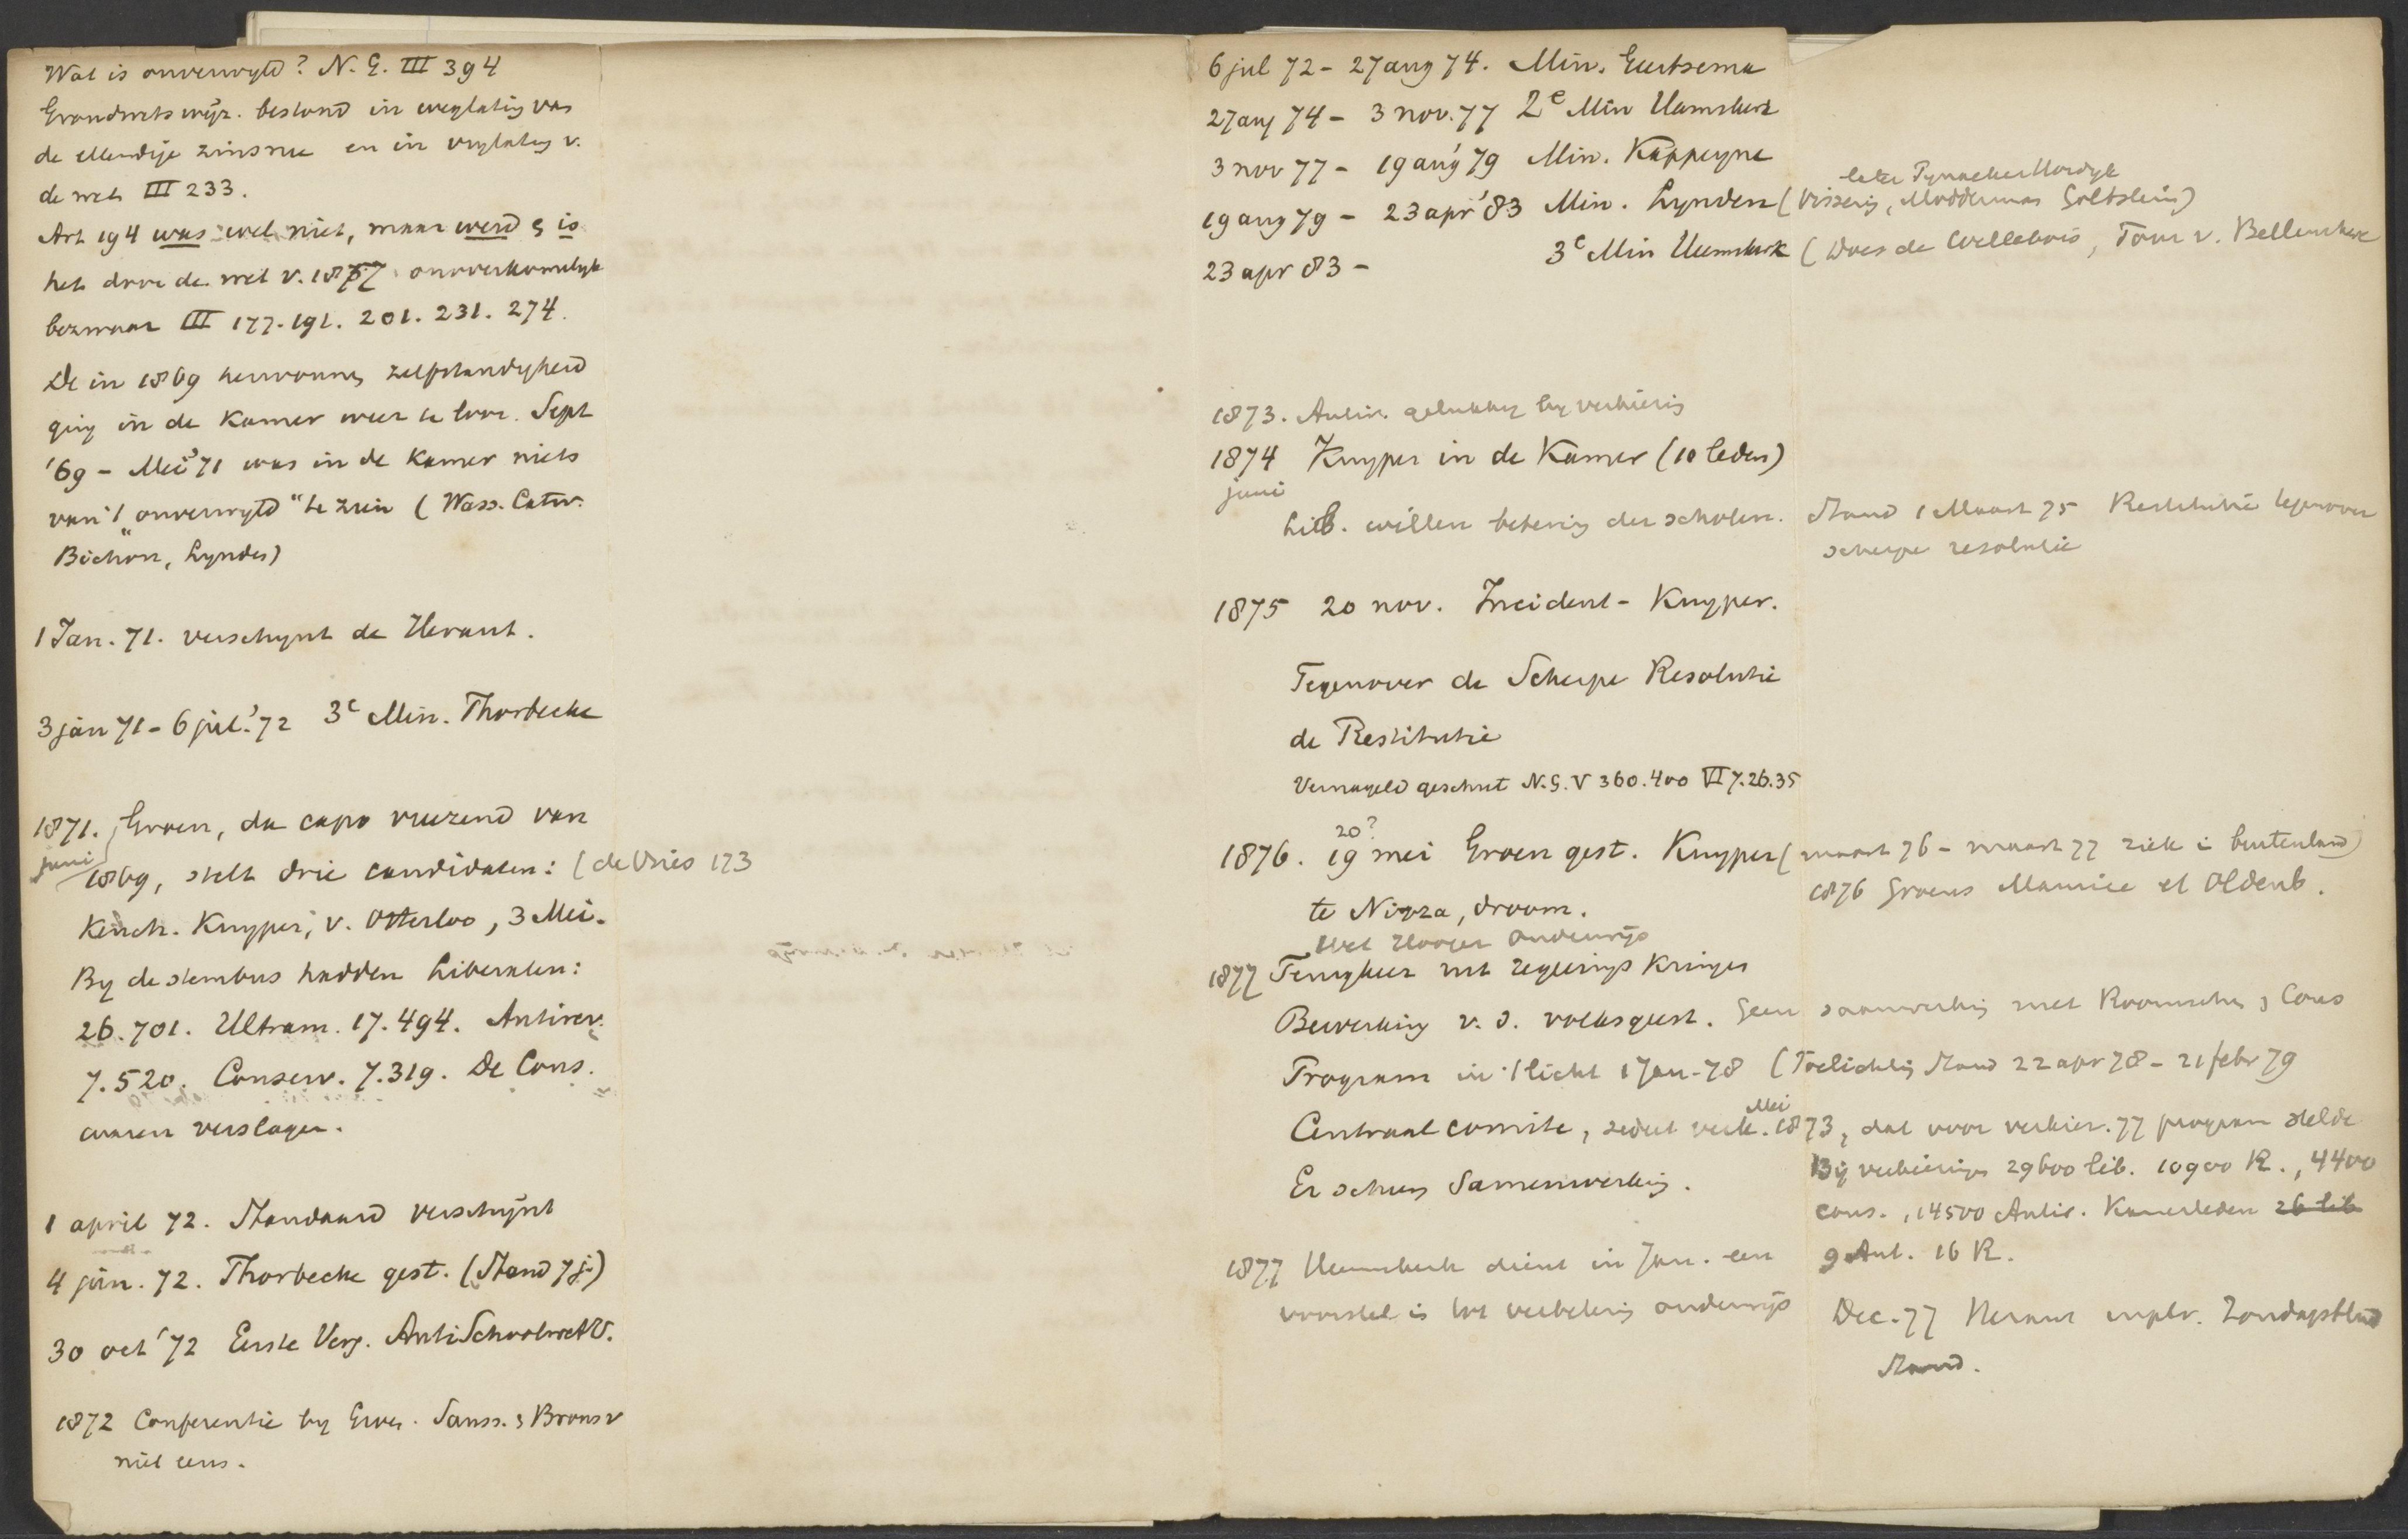 Wat is onverwyld? N. G. III 394
Grondwetswijz. bestond in weglating van
de ellendige zinsnee en in vrylating v.
de wet III 233.
Art 194 was wel niet, maar werd & is
het door de wet v. 1857 onoverkomelyk
bezwaar III 177. 191. 201. 231. 274.
De in 1869 herwonnen zelfstandigheid
ging in de Kamer weer te loor. Sept
'69 - Mei '71 was in de Kamer niets
van 't „onverwyld" te zien (Wass. Catw.
Bichon, Lynden)
1 Jan. 71. verschynt de Heraut.
3 jan 71 - 6 jul. '72 3e Min. Thorbecke
1871. Groen, da capo vreezend van
juni
1869, stelt drie candidaten: (de Vries 173
Keuch. Kuyper, v. Otterloo, 3 Mei.
By de stembus hadden Liberalen:
26.701. Ultram. 17.494. Antirev.
7.520. Conserv. 7.319. De Cons.
waren verslagen.
1 april 72. Standaard verschijnt
4 jun. 72. Thorbecke gest. (Stand 7 j.)
30 oct '72 Eerste Verg. AntiSchoolwetV.
1872 Conferentie by Groen. Sauss. & Bronsv
niet eens.
6 jul 72 - 27 aug 74. Min. Geertsema
27 aug 74 - 3 nov. 77 2e Min Heemskerk
3 nov 77 - 19 aug '79 Min. Kappeyne
later Pynacker Hordyk
19 aug 79 - 23 apr '83 Min. Lynden (Vissering, Modderman Goltstein)
23 apr 83 - 3e Min Heemskerk (Does de Willebois, Tour v. Bellinchave
1873. Antir. gelukkig by verkiezing
1874 Kuyper in de Kamer (10 leden)
juni
Lib. willen betering der scholen. Stand 1 Maart 75 Restitutie tegenover
scherpe resolutie
1875 20 nov. Incident - Kuyper.
Tegenover de Scherpe Resolutie
de Restitutie
Vernageld geschut N.G. V 360. 400 VI 7. 26. 35
20?
1876. 19 mei Groen gest. Kuyper (maart 76 - maart 77 ziek i buitenland)
1876 Groens Maurice et Oldenb.
te Nizza, droom.
Wet Hooger Onderwijs
1877 Terugkeer uit regeerings kringen
Bewerking v. d. volksgeest. Geen saamwerking met Roomschen & Cons
Program in 't licht 1 Jan. 78 (Toelichting Stand 22 apr 78 - 21 febr 79
Mei
Centraal comité, sedert verk. 1873, dat voor verkiez. 77 program stelde
Er scheen Samenwerking.
By verkiezingen 29600 lib. 10900 R., 4400
cons., 14500 Antir. Kamerleden 26 lib
9 Ant. 16 R.
1877 Heemskerk dient in Jan. een
voorstel in tot verbetering onderwijs
Dec. 77 Heraut inplv. Zondagsblad
Stand.